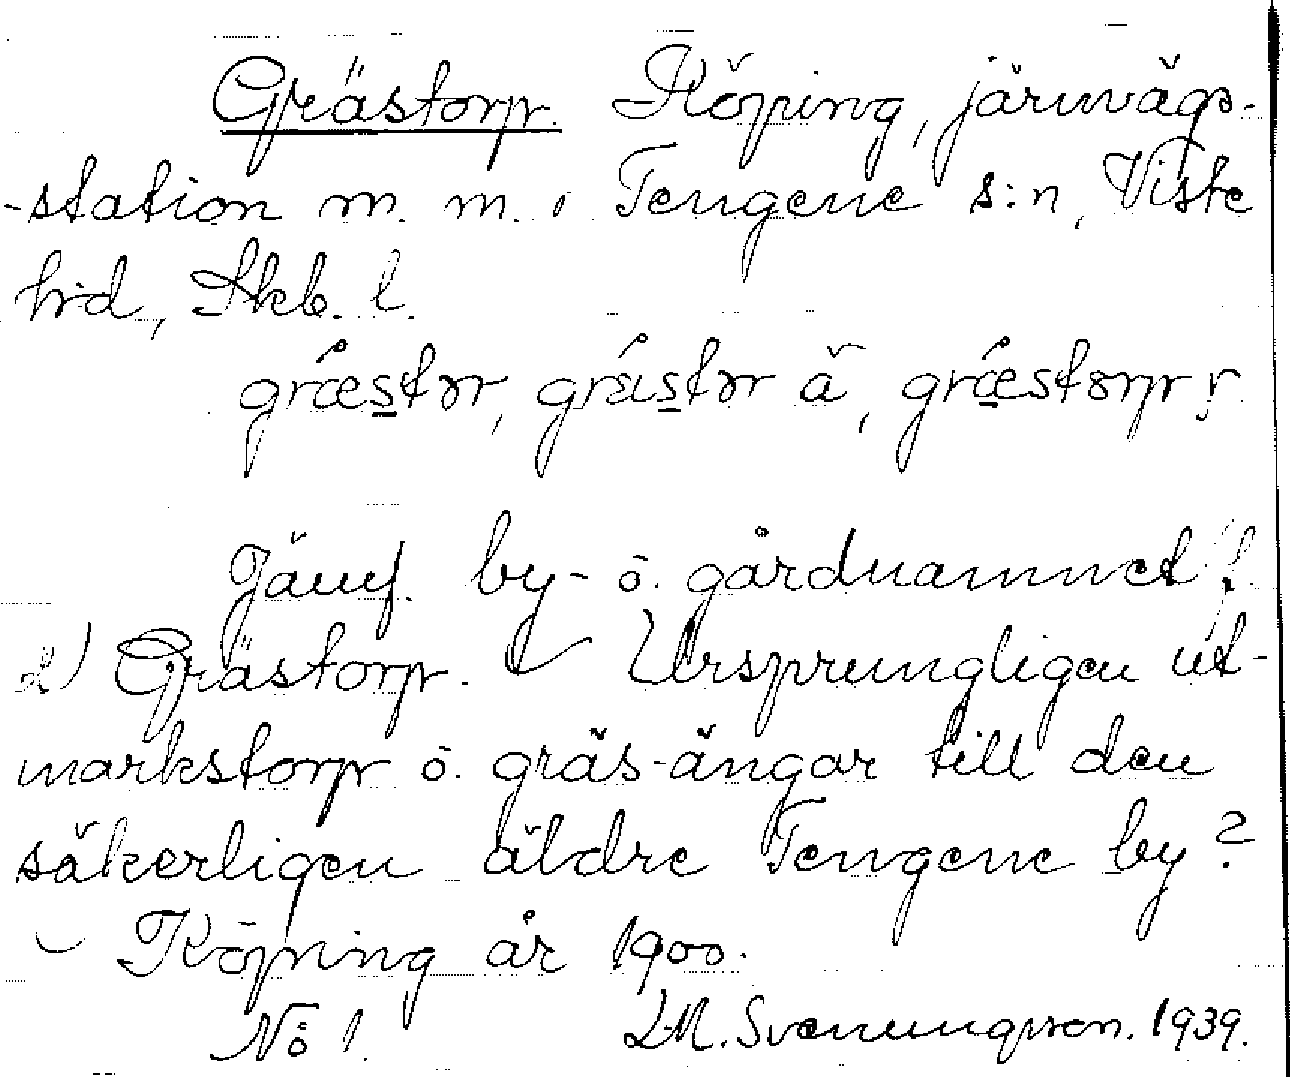 Grästorp. Köping, järnvägs-
-station m. m. i Tengene s:n, Viste
hrd, Skb. l.
græstor, gräistor ä, græstorp r.
Jämf. by- o. gårdnamnet
2) Grästorp. Ursprungligen ut-
markstorp o. gräs-ängar till den
säkerligen äldre Tengene by?
- Köping år 1900.
No 1. D.M. Svenungsson. 1939.